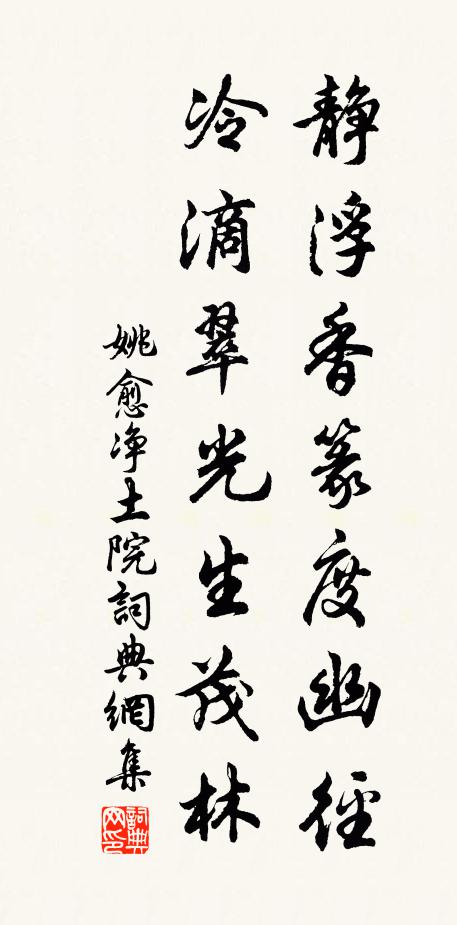 靜浮香篆度幽徑
冷滴翠光生茂林
姚愈净土院詞典網集
詞典網印